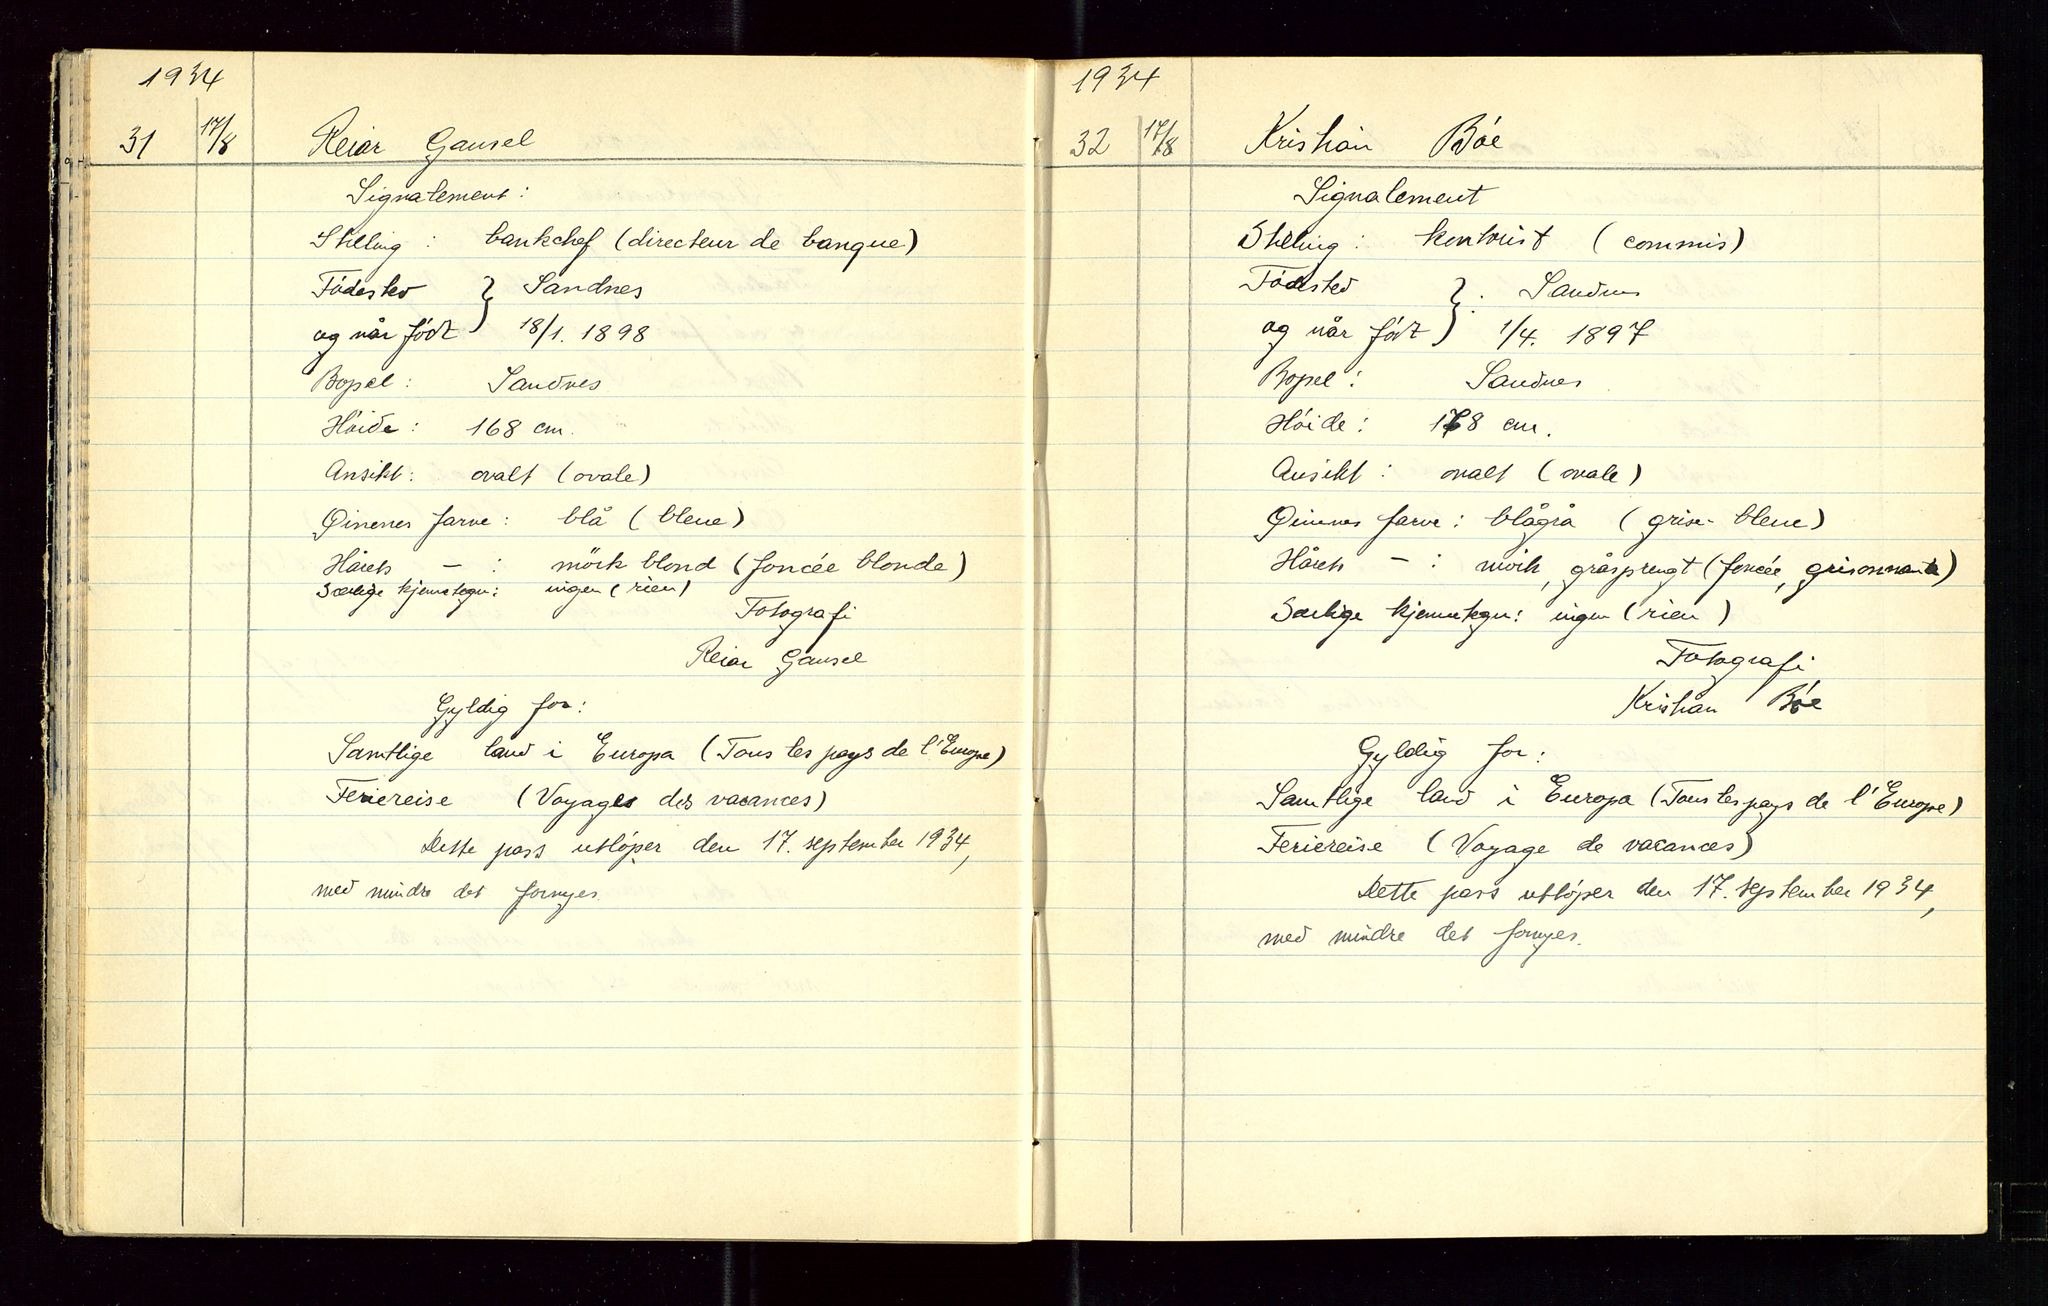 1934
31 17/8 Reiar Gausel
Signalement:
Stilling: bankchef (directeur de banque)
Fødested } Sandnes
og når født 18/1. 1898
Bopel: Sandnes
Høide: 168 cm.
Ansikt: ovalt (ovale)
Øinenes farve: blå (bleue)
Hårets — : mörk blond (foncée blonde)
Særlige kjennetegn: ingen (rien)
Fotografi
Reiar Gausel
Gyldig for:
Samtlige land i Europa (Tous les pays de l'Europe)
Feriereise (Voyages des vacances)
Dette pass utløper den 17. september 1934,
med mindre det fornyes.
1934
32 17/8 Kristian Bøe
Signalement
Stilling: kontorist (commis)
Fødested } : Sandnes
og når født 1/4. 1897
Bopel: Sandnes
Høide: 178 cm.
Ansikt: ovalt (ovale)
Øinenes farve: blågrå (grise-bleue)
Hårets — : mörk, gråsprengt (foncée, grisonnante)
Særlige kjennetegn: ingen (rien)
Fotografi
Kristian Bøe
Gyldig for:
Samtlige land i Europa (Tous les pays de l'Europe)
Feriereise (Voyage de vacances)
Dette pass utløper den 17. september 1934,
med mindre det fornyes.